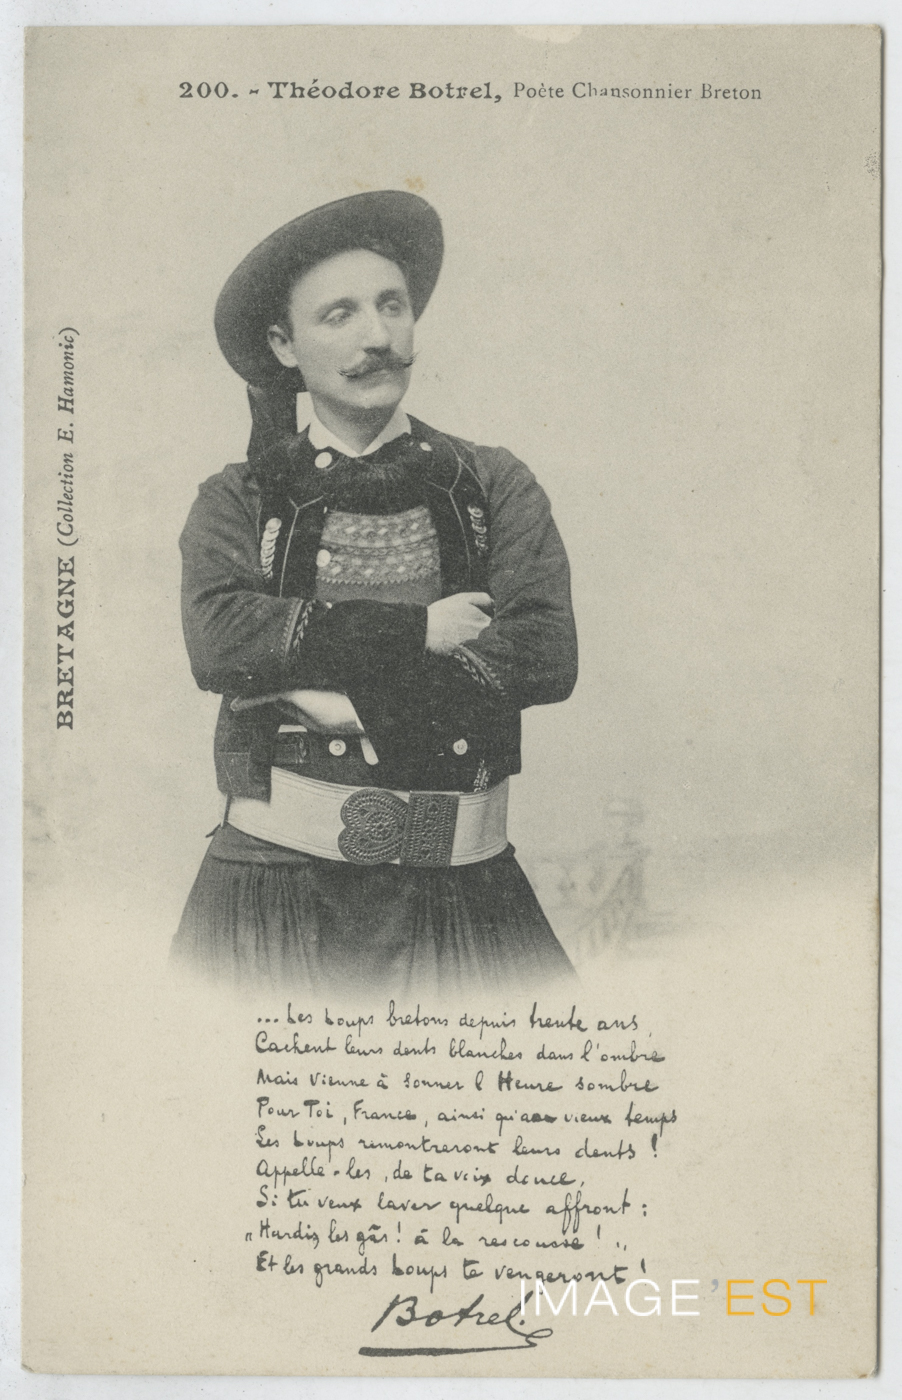 200. - Théodore Botrel, Poète Chansonnier Breton
BRETAGNE (Collection E. Hamonic)
... Les Loups bretons depuis trente ans,
Cachent leurs dents blanches dans l'ombre
Mais Vienne à Sonner l'Heure sombre
Pour Toi, France, ainsi qu'aux vieux temps
Les Loups remontreront leurs dents !
Appelle-les, de ta voix douce,
Si tu veux laver quelque affront :
"Hardis les gâs ! à la rescousse ! "
Et les grands Loups te vengeront !
Botrel.
IMAGE'EST